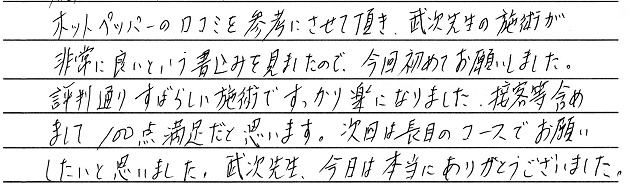 ホットペッパーの口コミを参考にさせて頂き、武次先生の施術が
非常に良いという書込みを見ましたので、今回初めてお願いしました。
評判通りすばらしい施術ですっかり楽になりました、接客等含め
まして100点満足だと思います。次回は長目のコースでお願い
したいと思いました。武次先生、今日は本当にありがとうございました。